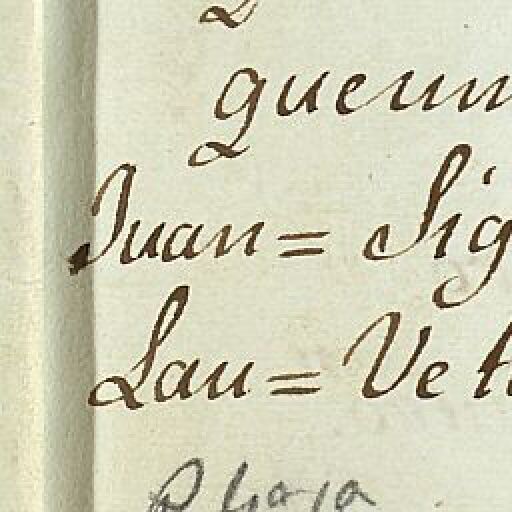 queun
Juan= Sig
Lau= Vet